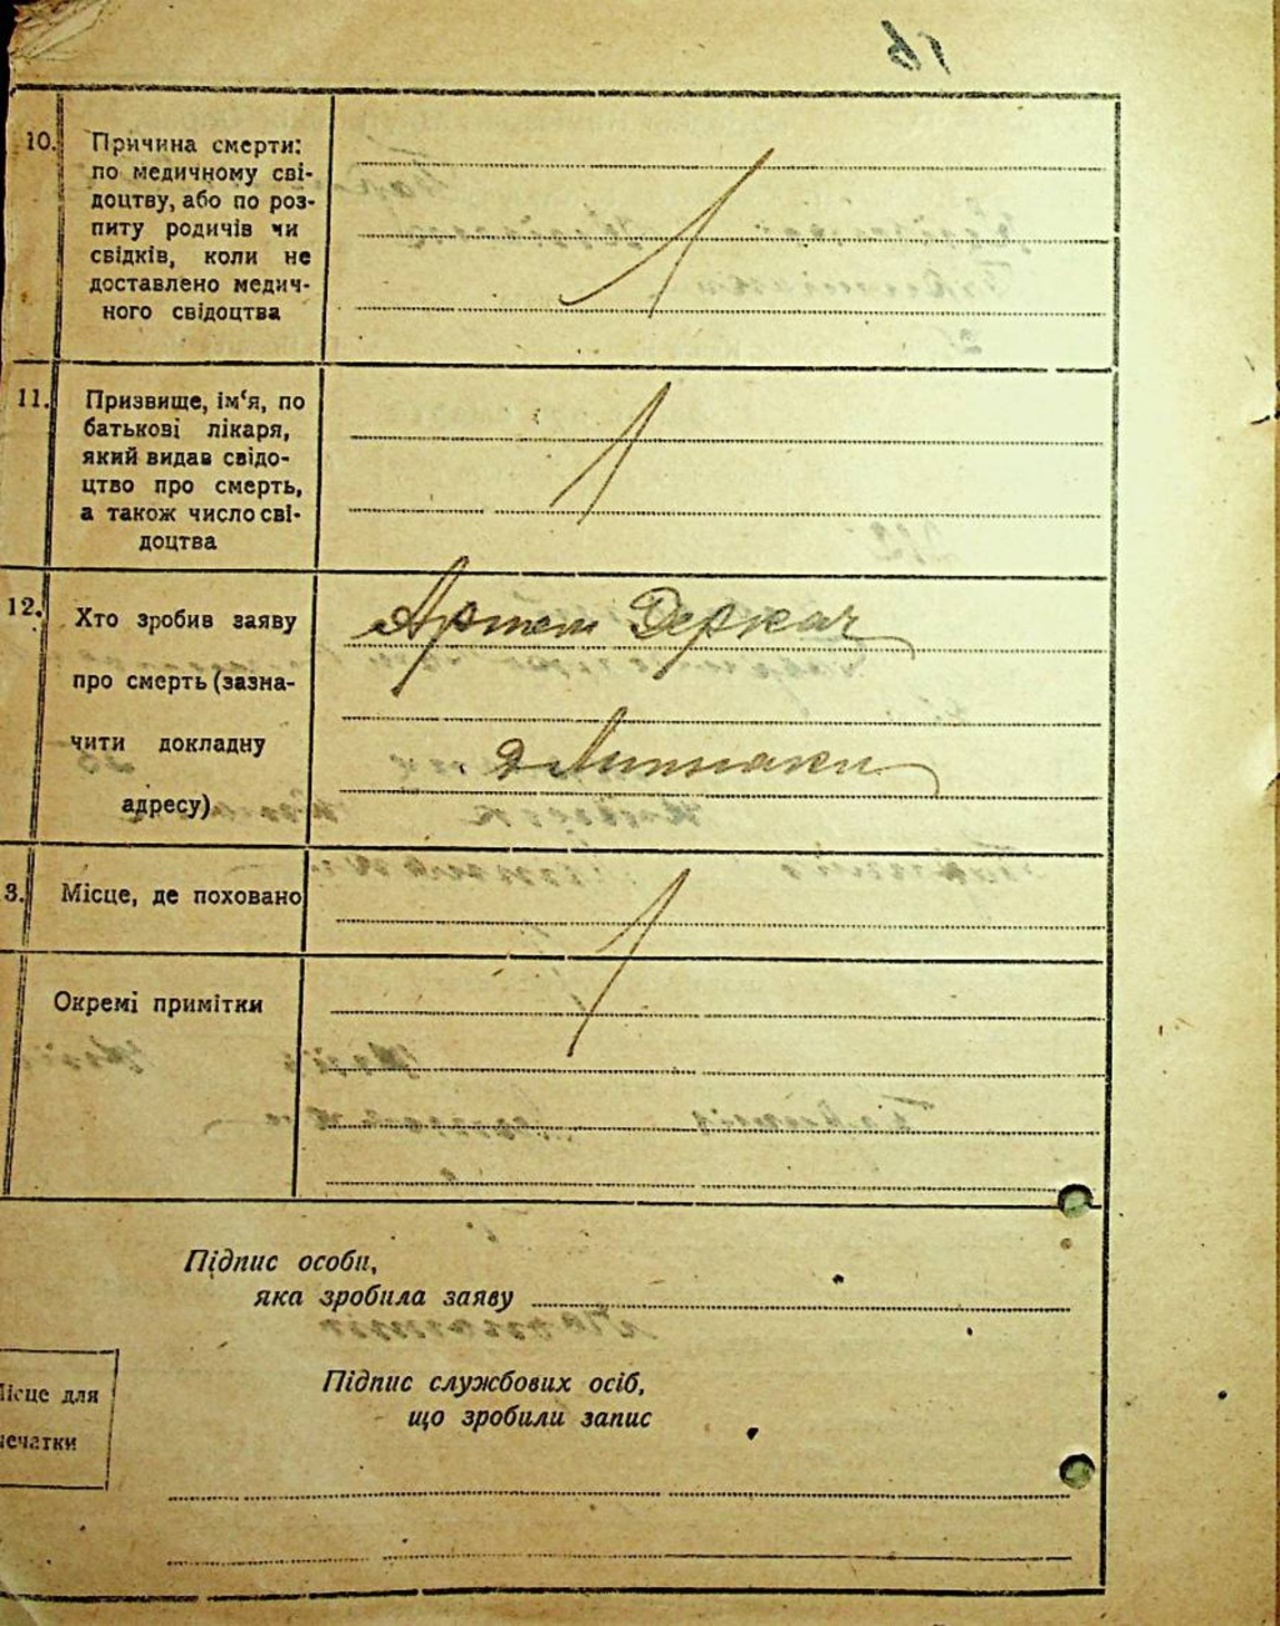 10. Причина смерти:
по медичному сві-
доцтву, або по роз-
питу родичів чи
свідків, коли не
доставлено медич-
ного свідоцтва
11. Призвище, ім‘я, по
батькові лікаря,
який видав свідо-
цтво про смерть,
а також число сві-
доцтва
12. Хто зробив заяву
про смерть (зазна-
чити докладну
адресу)
Артем Деркач
3. Місце, де поховано
Окремі примітки
Підпис особи,
яка зробила заяву
Підпис службових осіб,
що зробили запис
ісце для
ечатки